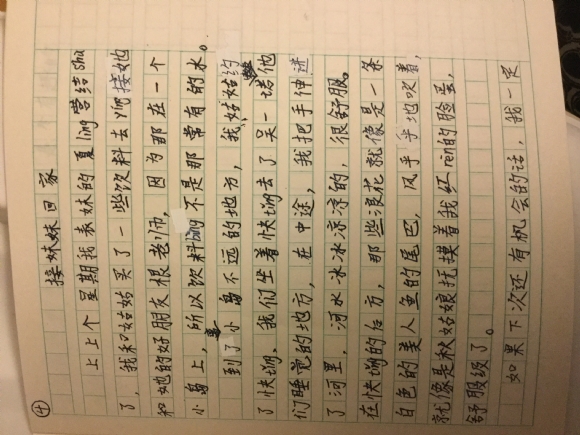 ④
接妹妹回家
上上个星期我表妹的夏ling营结shu
了，我和姑姑买了一些饮料去ying接她
和她的好朋友根老师，因为那在一个
小岛上，所以饮料bing不是那常有的水。
到了小岛不远的地方，我姑姑给约
了快艄，我们坐着快艄去了吴一塔他
们睡觉的地方，在中途，我把手伸进
了河里，河水冰冰凉凉的，很舒服，
在快艄的后方，那些浪花就像是一条
白色的美人鱼的尾巴，风乎乎地吹着，
就像是秋姑娘抚摸着我红ren的脸蛋，
舒服级了。
如果下次还有机会的话，我一定